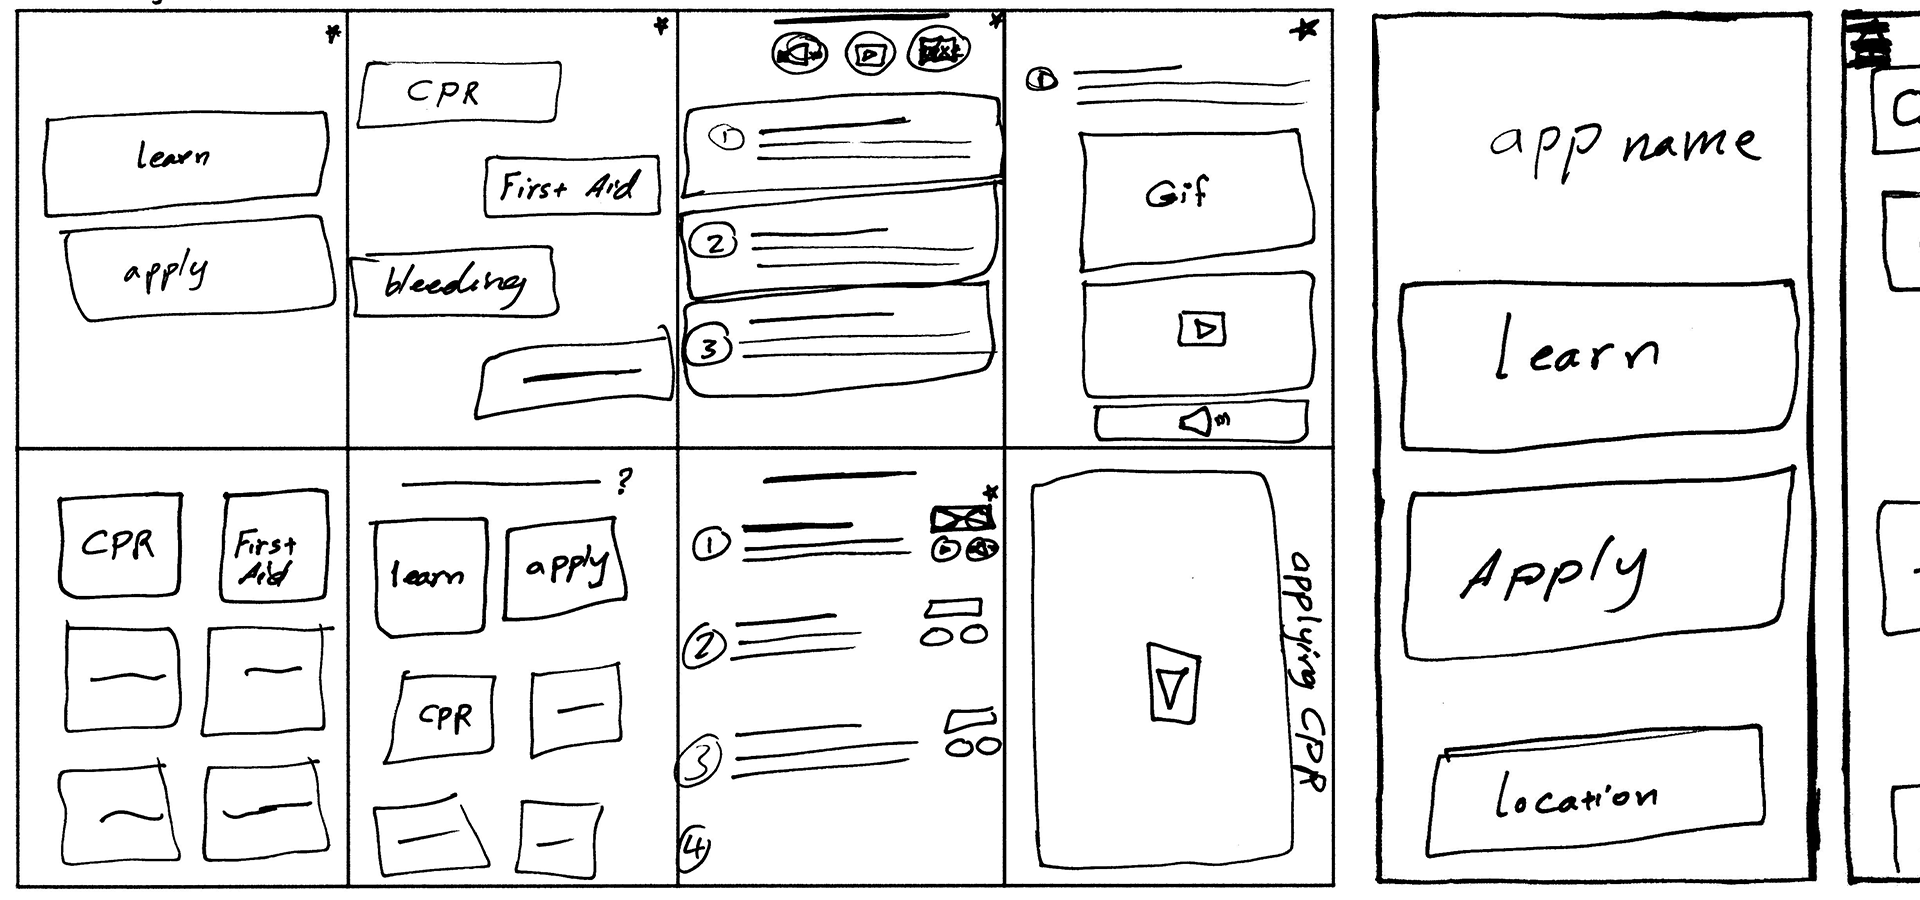 learn
apply
CPR
First Aid
bleeding
1
2
3
1
Gif
CPR
First
Aid
?
learn
apply
CPR
1
2
3
4
applying CPR
app name
learn
Apply
location